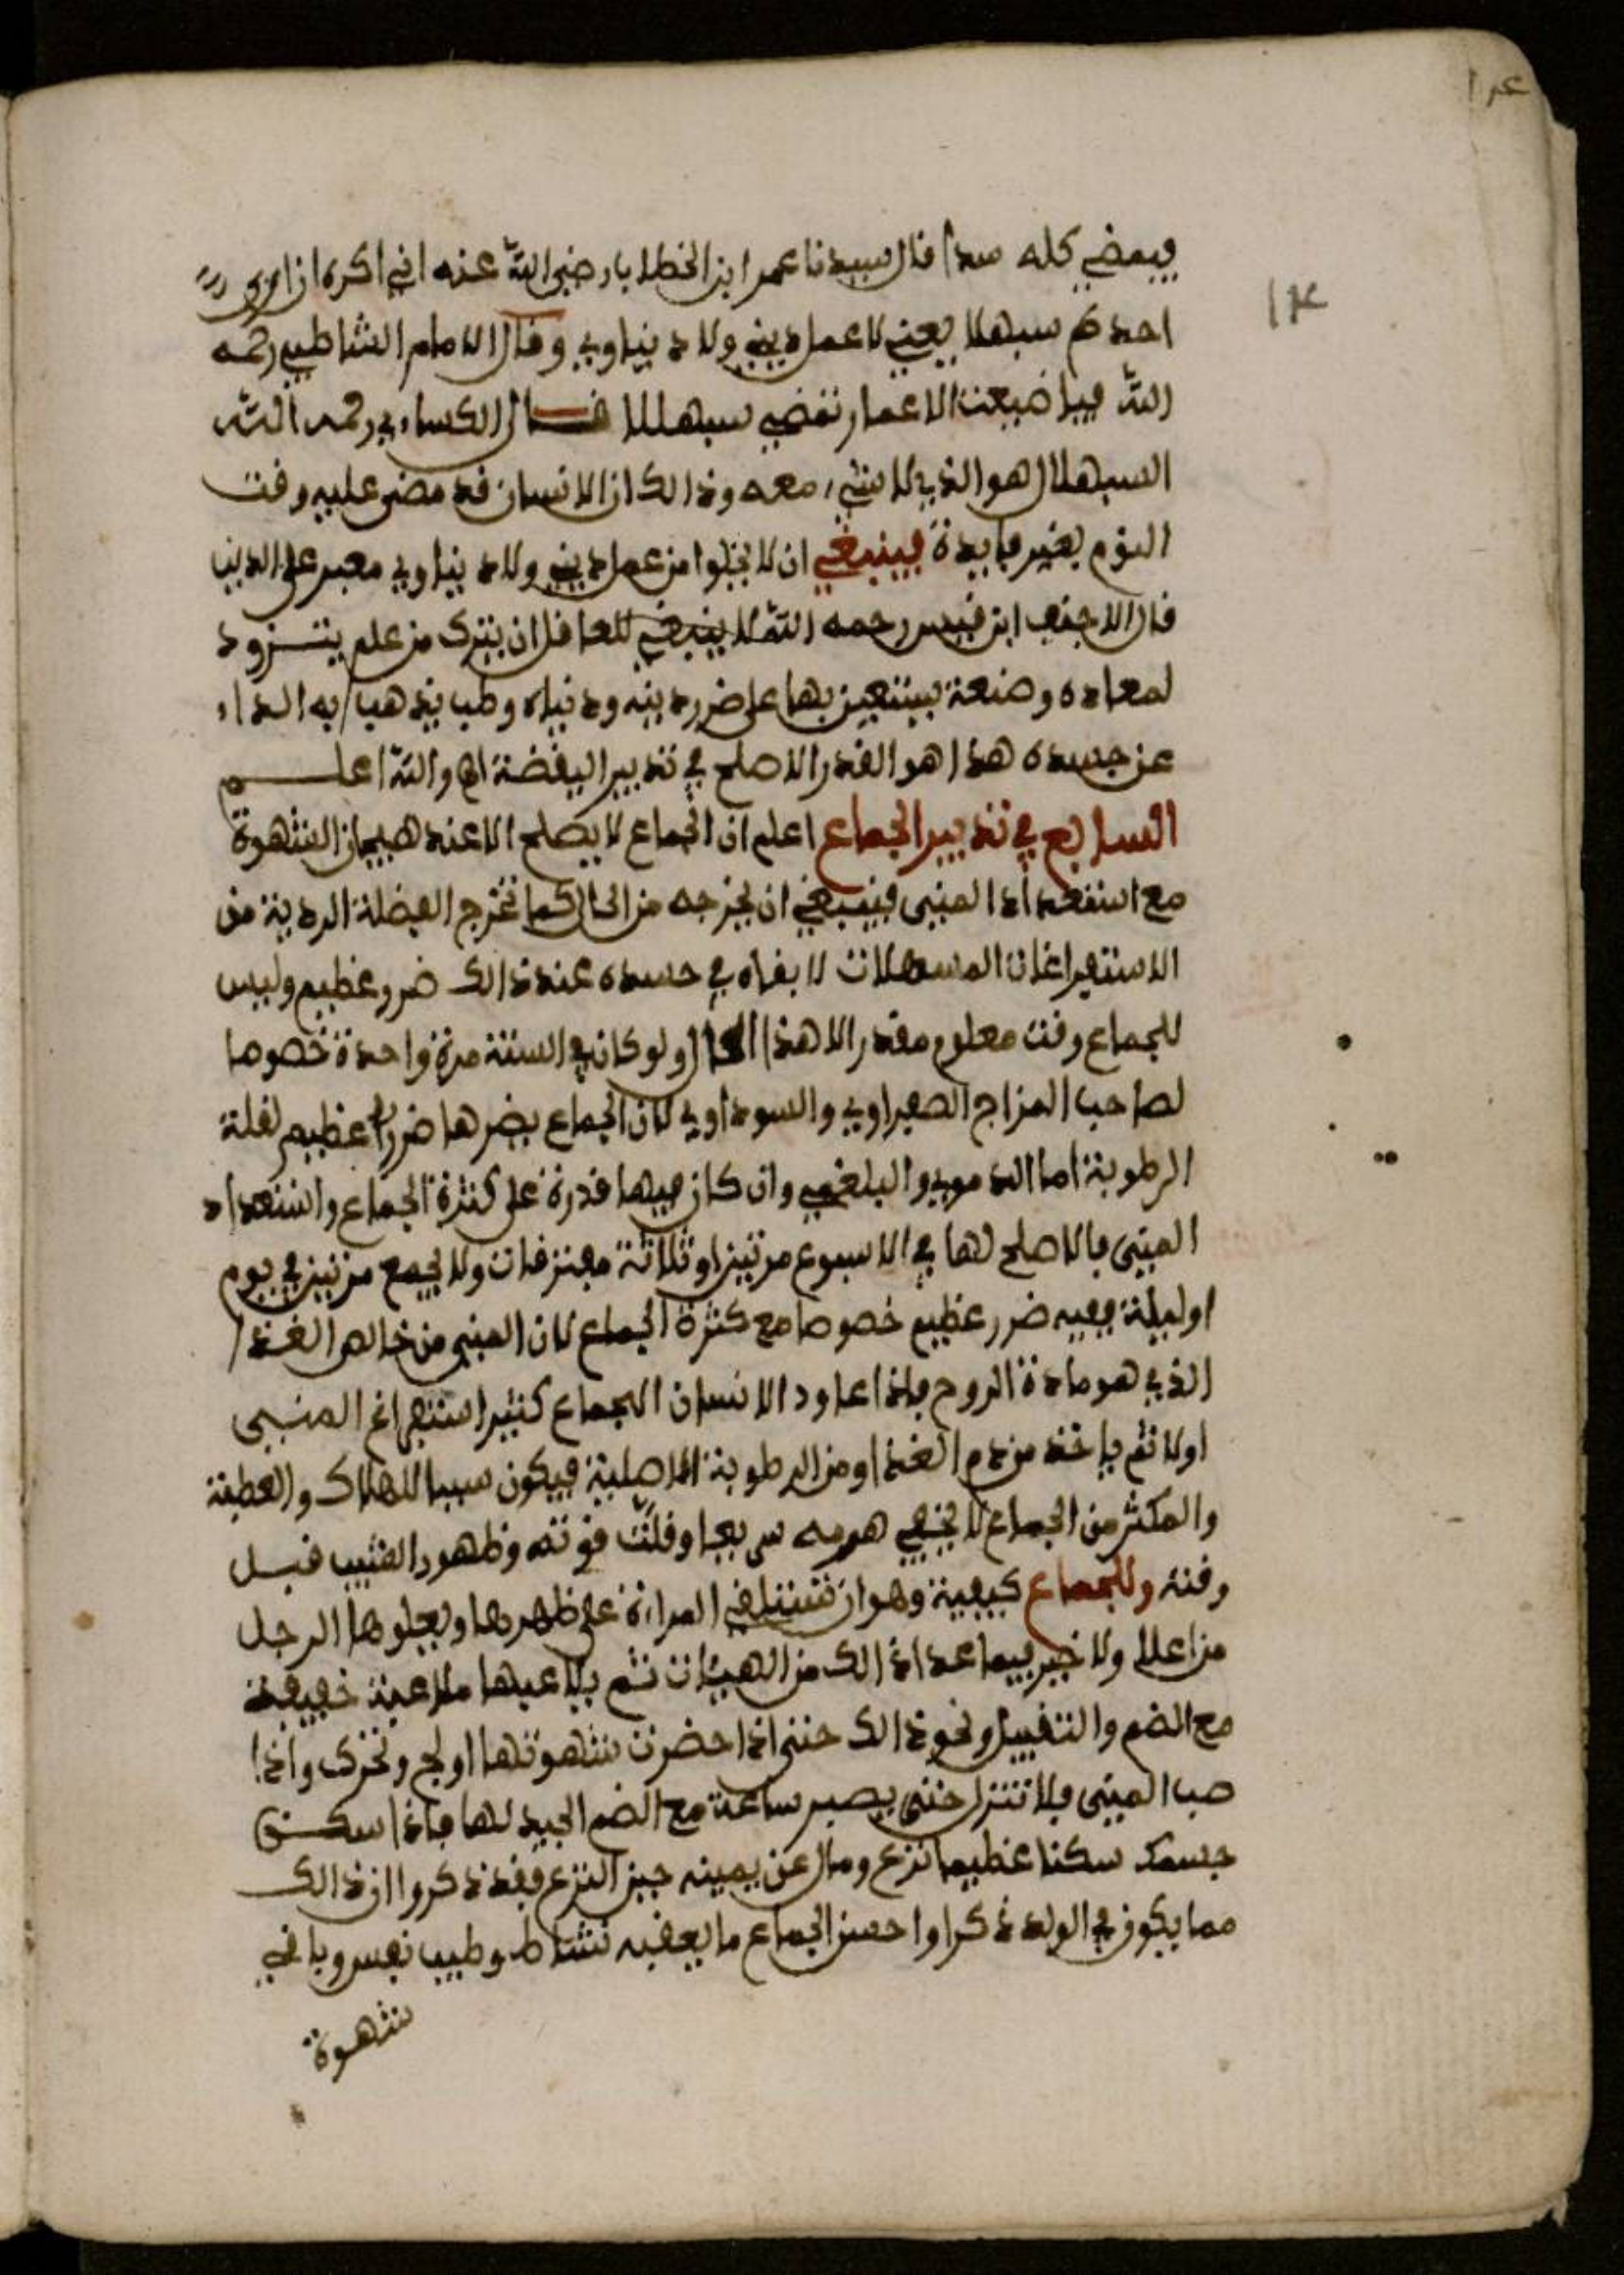 ١٤
١٤
فيمضي كله سدا قال سيدنا عمر ابن الخطاب رضي الله عنه اني اكره ان ارى
احدكم سبهللا يعني لا عمل ديني ولا دنياوي وقال الامام الشاطبي رحمه
الله فيا ضيعت الاعمار تمضي سبهللا قال الكساءي رحمه الله
السبهلال هو الذي لا شيء معه وذالك ان الانسان قد مضى عليه وقت
النوم بغير فايدة فينبغي ان لا يخلوا من عمل ديني ولا دنياوي معبر على الدين
قال الاحنف ابن قيس رحمه الله لا ينبغي للعاقل ان يترك من علم يتزود
لمعاده وصنعة يستعين بها على ضرر دينه ودنياه وطب يذهب به الداء
عن جسده هذا هو القدر الاصلح في تدبير اليقضة اه والله اعلم
السابع في تدبير الجماع اعلم ان الجماع لا يصلح الا عند هيجان الشهوة
مع استعداد المني فينبغي ان يخرجه من الحال كما تخرج الفضلة الردية من
الاستفراغات المسهلات لا بقاه في جسده عند ذالك ضرر عظيم وليس
للجماع وقت معلوم مقدر الا هذا الحال ولو كان في السنة مرة واحدة خصوصا
لصاحب المزاج الصفراوي والسوداوي لان الجماع يضرها ضررا عظيم لقلة
الرطوبة اما الدموي والبلغمي وان كان فيهما قدرة على كثرة الجماع واستعداد
المني فالاصلح لهما في الاسبوع مرتين او ثلاثة مفترقات ولا يجمع مرتين في يوم
او ليلة ففيه ضرر عظيم خصوصا مع كثرة الجماع لان المني من خالص الغذا
الذي هو مادة الروح فاذا عاود الانسان الجماع كثيرا استفراغ المني
اولا ثم ياخذ من دم الغذا ومن الرطوبة الاصلية فيكون سببا للهلاك والعطية
والمكثر من الجماع لا يخفى هرمه سريعا وقلت قوته وظهور الشيب قبل
وقته وللجماع كيفية وهو ان تستلقي المراة على ظهرها ويعلوها الرجل
من اعلا ولا خير فيما عدا ذالك من الهيئات ثم يلاعبها ملاعبة خفيفة
مع الضم والتقبيل ونحو ذالك حتى اذا حضرت شهوتها اولج وتحرك واذا
صب المني فلا تنزل حتى يصبر ساعة مع الضم الجيد لها فاذا سكن
جسمك سكنا عظيما نزع ومال عن يمينه حين النزع فقد ذكروا ان ذالك
مما يكون في الولد ذكرا واحسن الجماع ما يعقبه نشاط وطيب نفس وباقي
شهوة